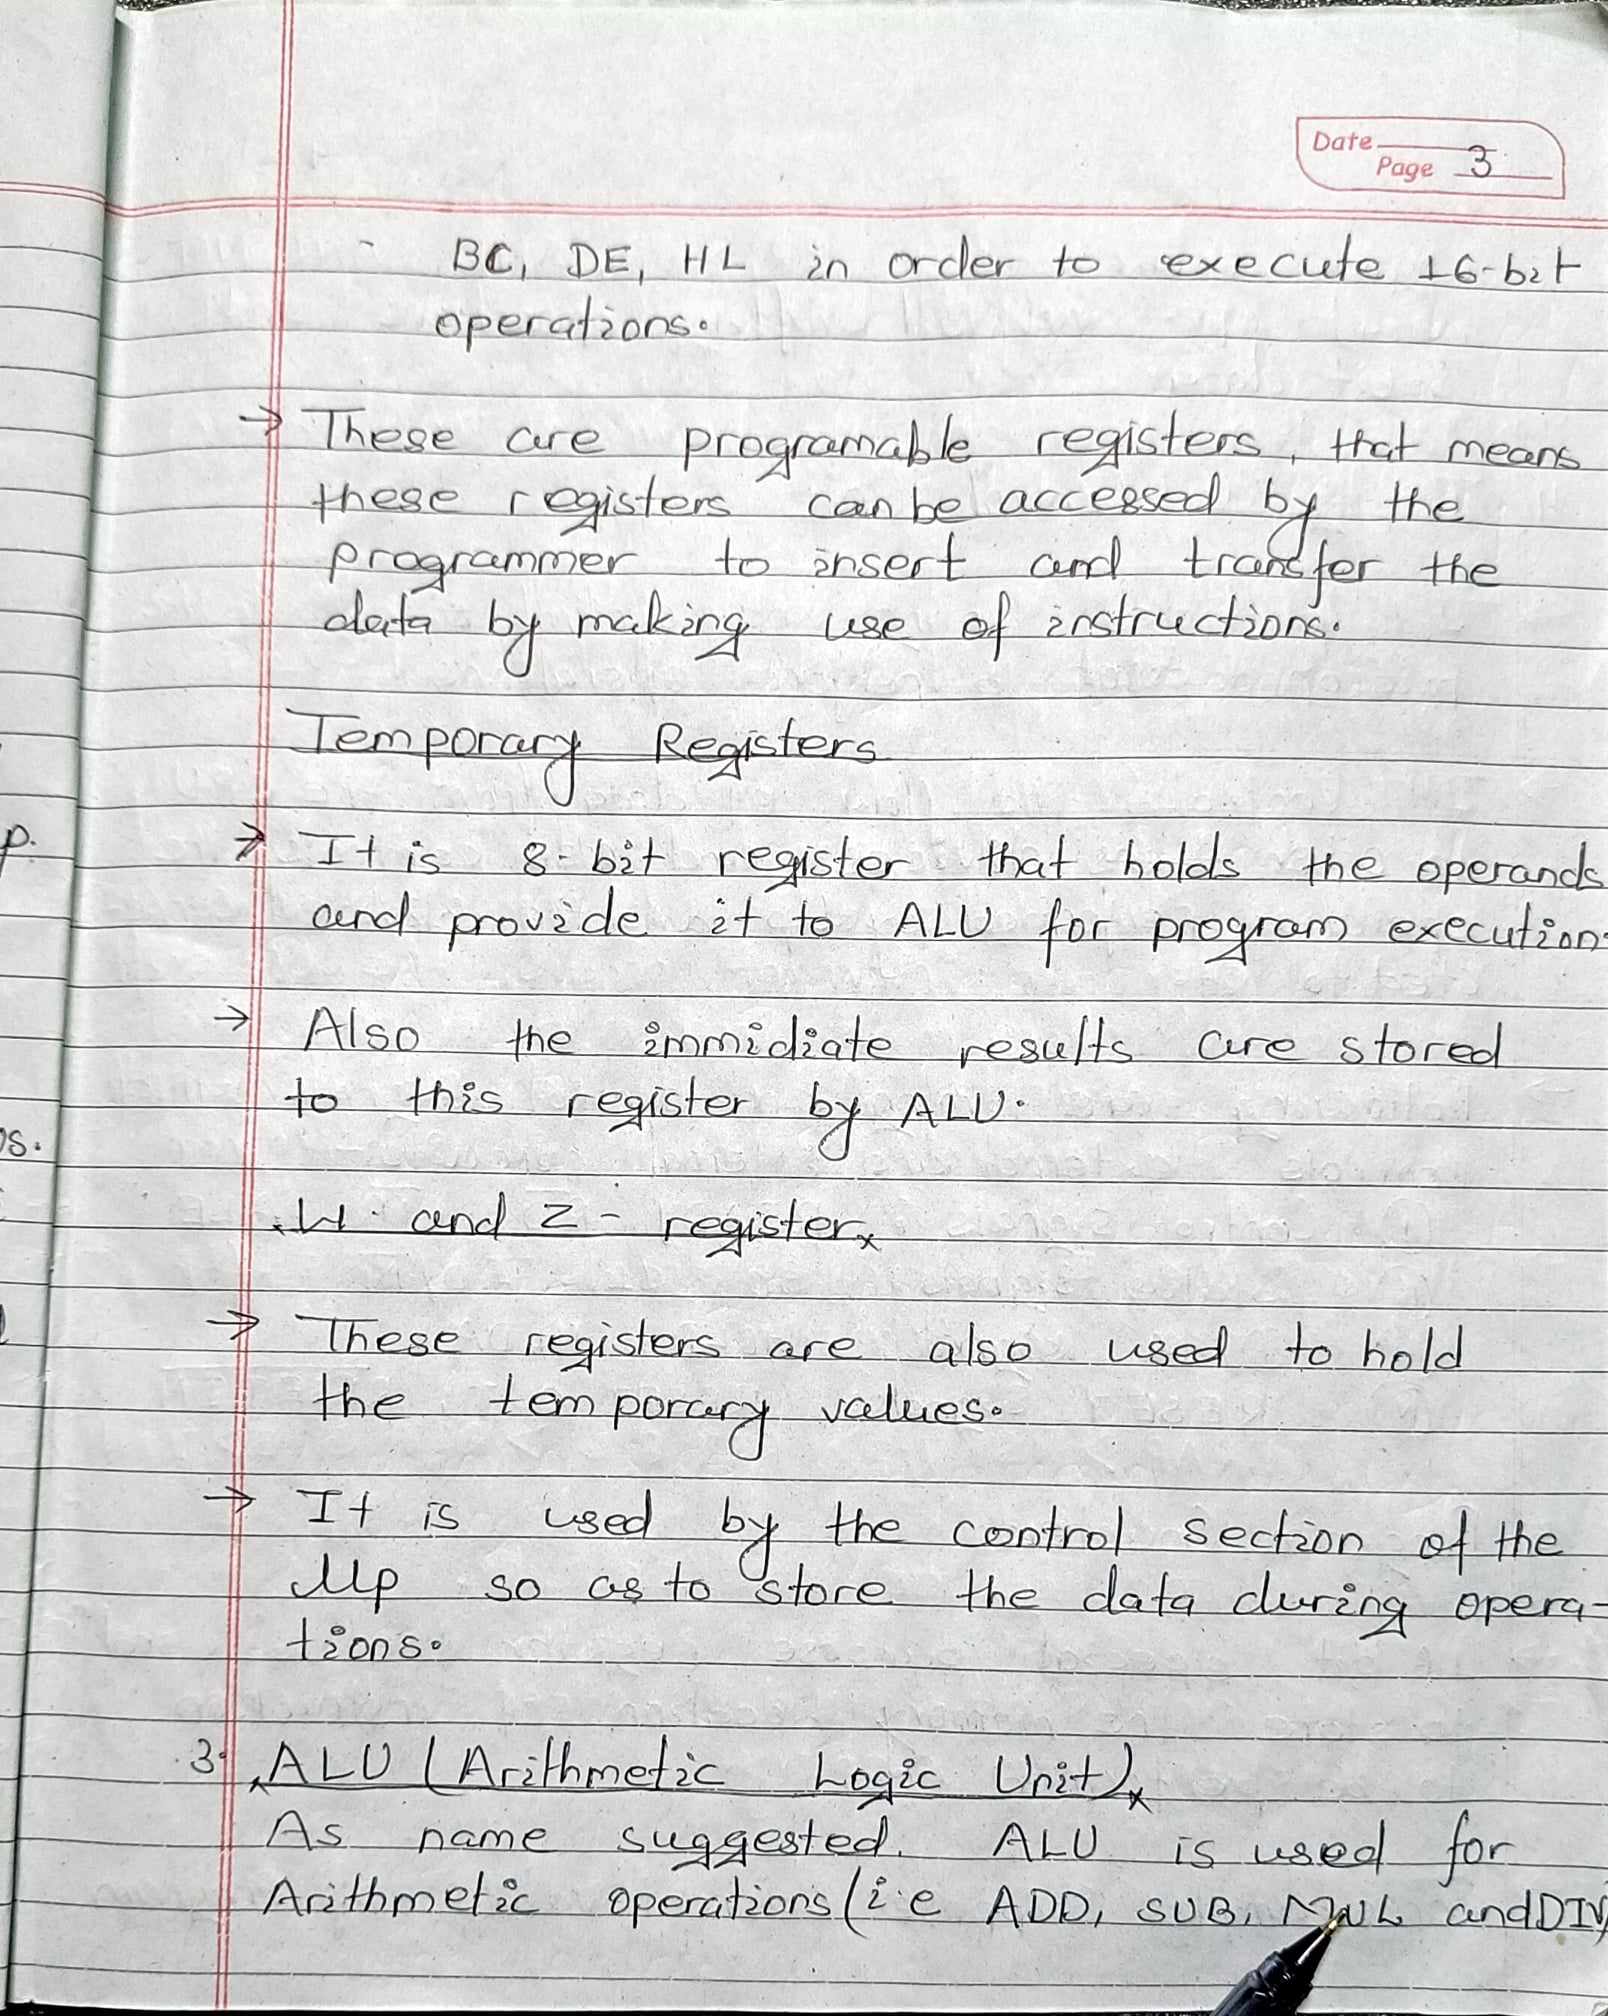 Date
Page 3
BC, DE, HL in order to execute 16-bit
operations.
→ These are programable registers, that means
these registers can be accessed by the
programmer to insert and transfer the
data by making use of instructions.
Temporary Registers
p.
→ It is 8-bit register that holds the operands
and provide it to ALU for program execution.
→ Also the immidiate results are stored
to this register by ALU.
s.
W and Z - register
→ These registers are also used to hold
the temporary values.
→ It is used by the control section of the
Mp so as to store the data during opera-
tions.
3. ALU (Arithmetic Logic Unit)
As name suggested. ALU is used for
Arithmetic operations (i.e ADD, SUB, MUL and DIV)